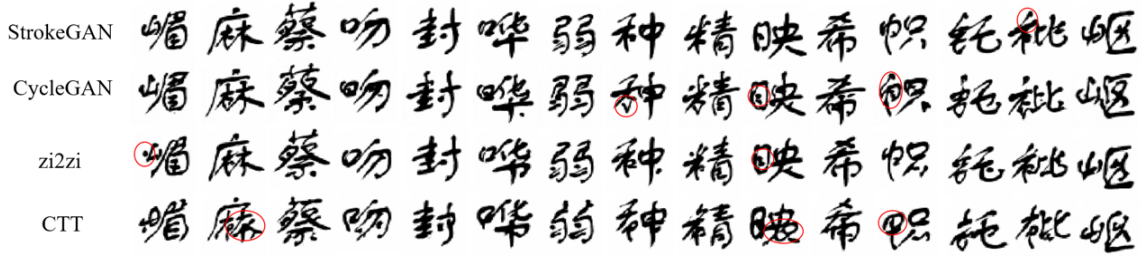 StrokeGAN 嵋 麻 蔡 吻 封 哗 弱 种 精 映 希 帜 牦 秕 岖
CycleGAN 嵋 麻 蔡 吻 封 哗 弱 种 精 映 希 帜 牦 秕 岖
zi2zi 嵋 麻 蔡 吻 封 哗 弱 种 精 映 希 帜 牦 秕 岖
CTT 嵋 麻 蔡 吻 封 哗 弱 种 精 映 希 帜 牦 秕 岖